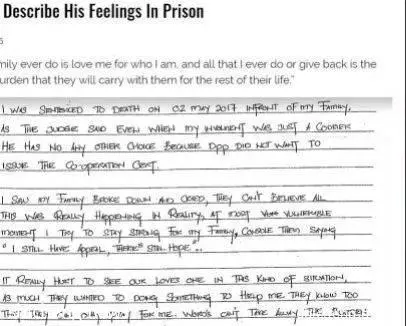 Describe His Feelings In Prison
5
mily ever do is love me for who I am. and all that I ever do or give back is the
urden that they will carry with them for the rest of their life."
I WAS SENTENCED TO DEATH ON 02 MAY 2017 INFRONT OF MY FAMILY,
AS THE JUDGE SAID EVEN WHEN MY INVOLMENT WAS JUST A COURIER
HE HAS NO ANY OTHER CHOICE BECAUSE DPP DID NOT WANT TO
ISSUE THE CO-OPERATION CERT.
I SAW MY FAMILY BROKE DOWN AND CRIED, THEY CAN'T BELIEVE ALL
THIS WAS REALLY HAPPENING IN REALITY, AT MOST VULNERABLE
MOMENT I TRY TO STAY STRONG FOR MY FAMILY, CONSOLE THEM SAYING
"I STILL HAVE APPEAL, THERE'S STILL HOPE".
IT REALLY HURT TO SEE OUR LOVES ONE IN THIS KIND OF SITUATION,
AS MUCH THEY WANTED TO DOING SOMETHING TO HELP ME THEY KNOW TOO
THAT THEY CAN ONLY PRAY FOR ME. WORDS CAN'T TAKE AWAY THE